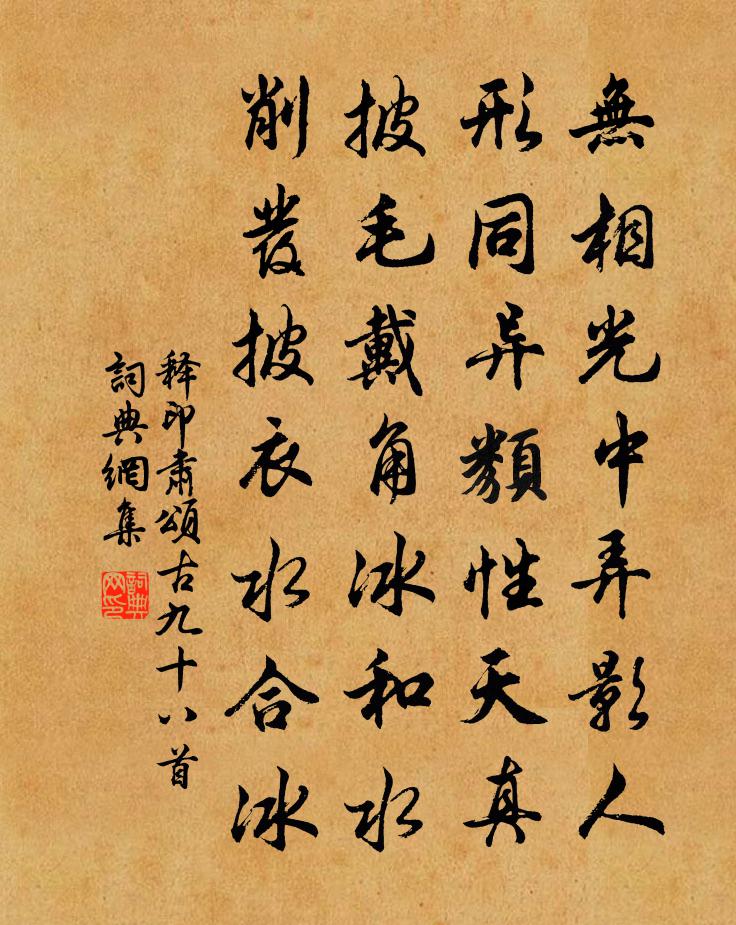 無相光中弄影人
形同异類性天真
披毛戴角冰和水
削發披衣水合冰
释印肅頌古九十八首
詞典網集
詞典网印